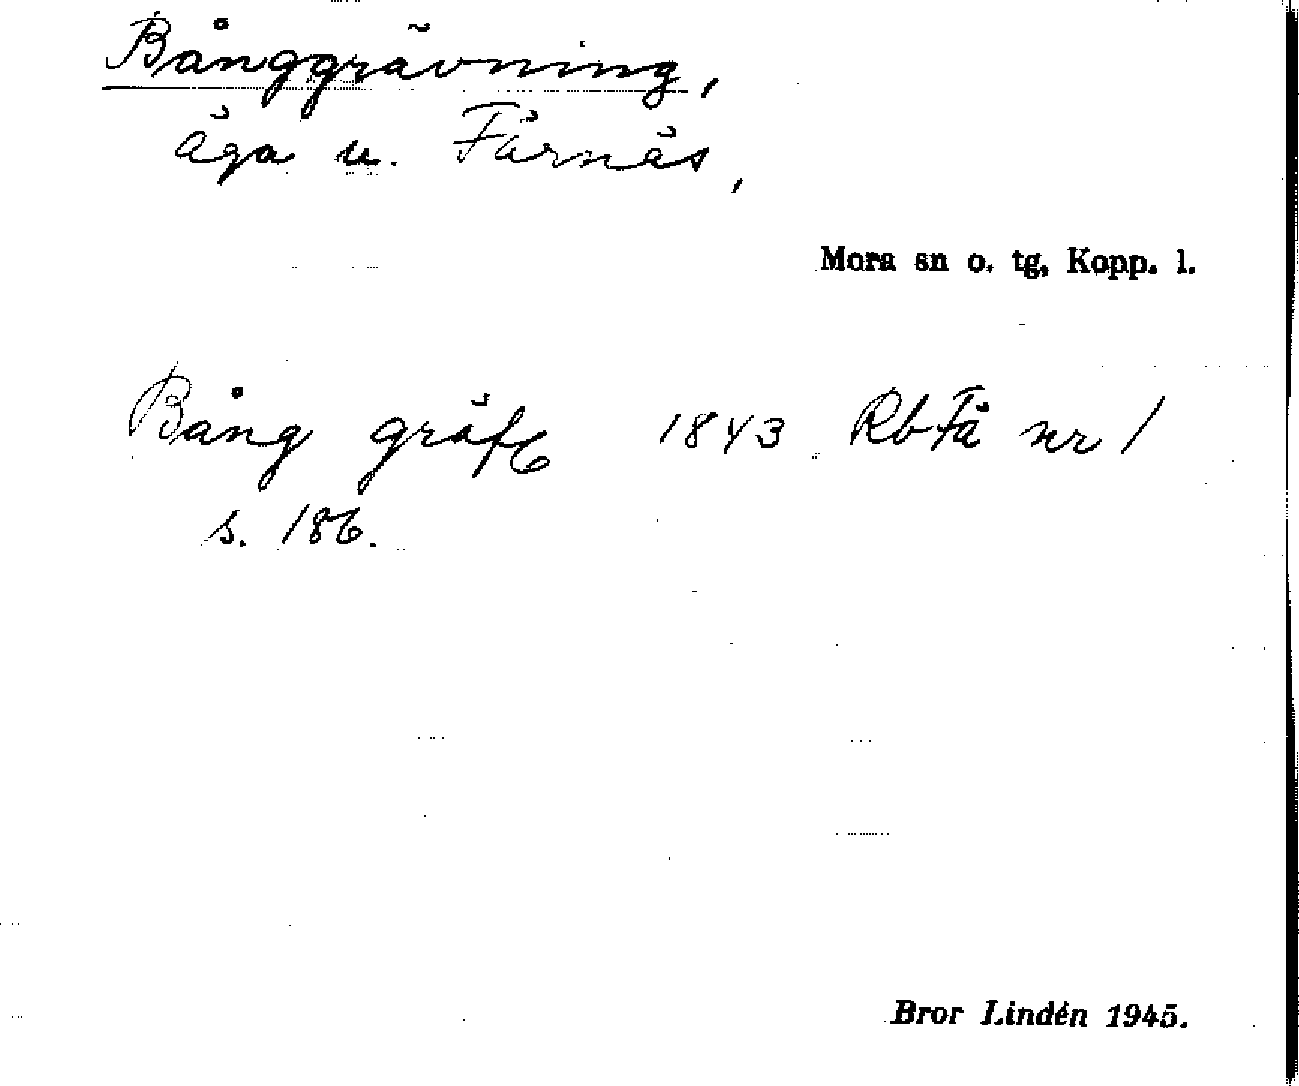 Bånggrävning,
äga u. Färnäs,
Mora sn o. tg, Kopp. l.
Bång gräfn 1843 Rb Fä nr 1
s. 186.
Bror Lindén 1945.